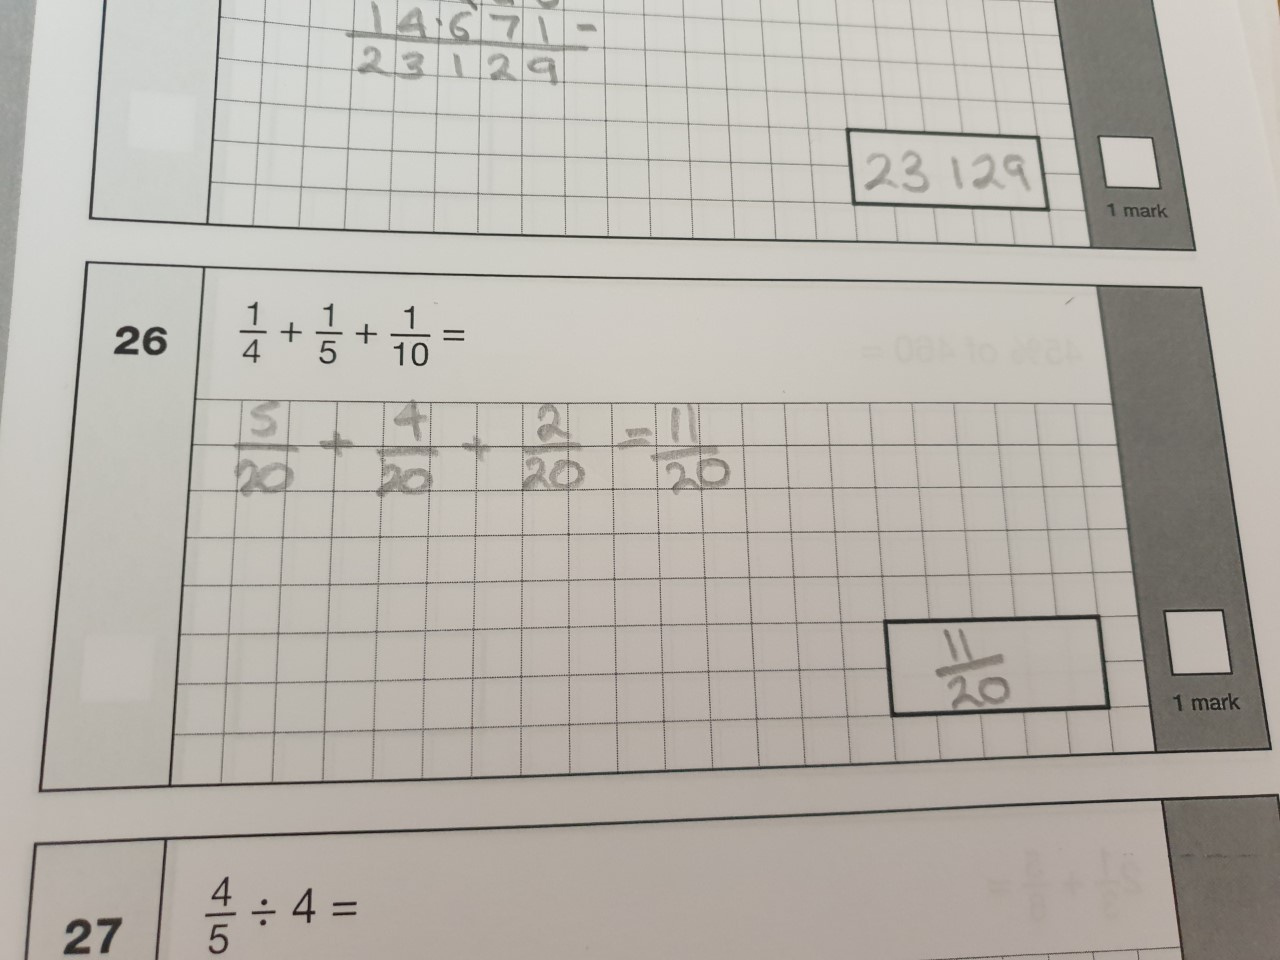 14.671 -
23129
23 129
1 mark
26
1/4 + 1/5 + 1/10 =
5/20 + 4/20 + 2/20 = 11/20
11/20
1 mark
27
4/5 ÷ 4 =